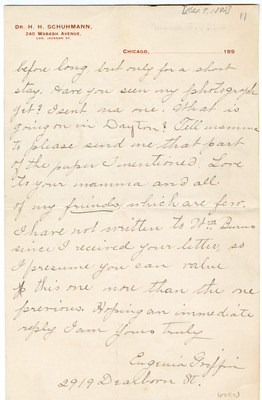 [Mar. 9, 1892]
11
DR. H. H. SCHUHMANN,
240 WABASH AVENUE,
COR. JACKSON ST.
CHICAGO, 189
before long, but only for a short
stay. Have you seen my photograph
yet? I sent ma one. What is
going on in Dayton? Tell mamma
to please send me that part
of the paper I mentioned. Love
to your mamma and all
of my friends, which are few.
I have not written to Burns
since I received your letter, so
I presume you can value
this one more than the one
previous. Hoping an immediate
reply I am Yours Truly
Eugenia Griffin
2919 Dearborn St.